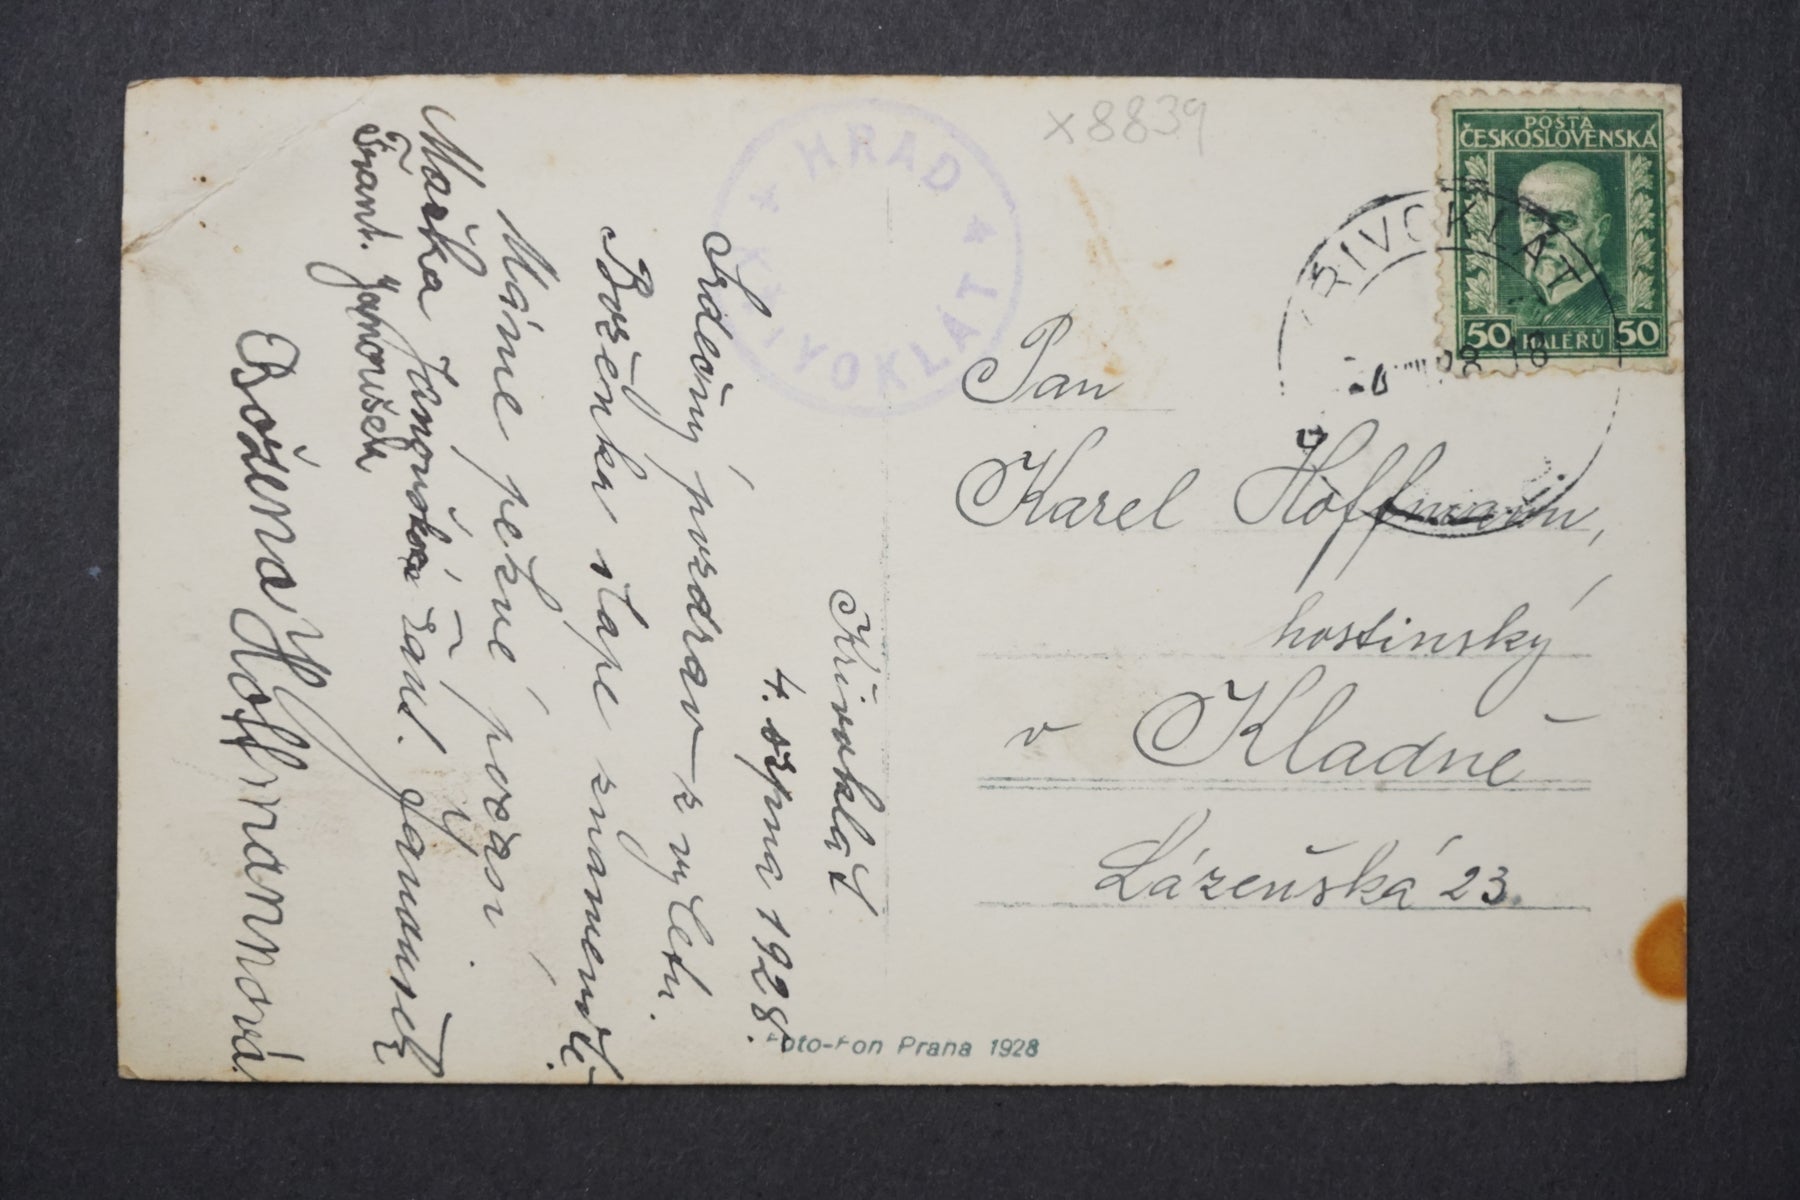 x8839
HRAD
KŘIVOKLÁT
POSTA
ČESKOSLOVENSKÁ
50 HALÉŘŮ 50
KŘIVOKLÁT
Pan
Karel Hoffmann,
hostinský
v Kladně
Lázeňská 23.
Křivoklát
4. srpna 1928.
Srdečný pozdrav z výletu.
Boženka šlape znamenitě.
Máme pěkné počasí.
Mařka Janoušková Fänl. Janoušek
Frant. Janoušek
Božena Hoffmannová.
Foto-Fon Praha 1928